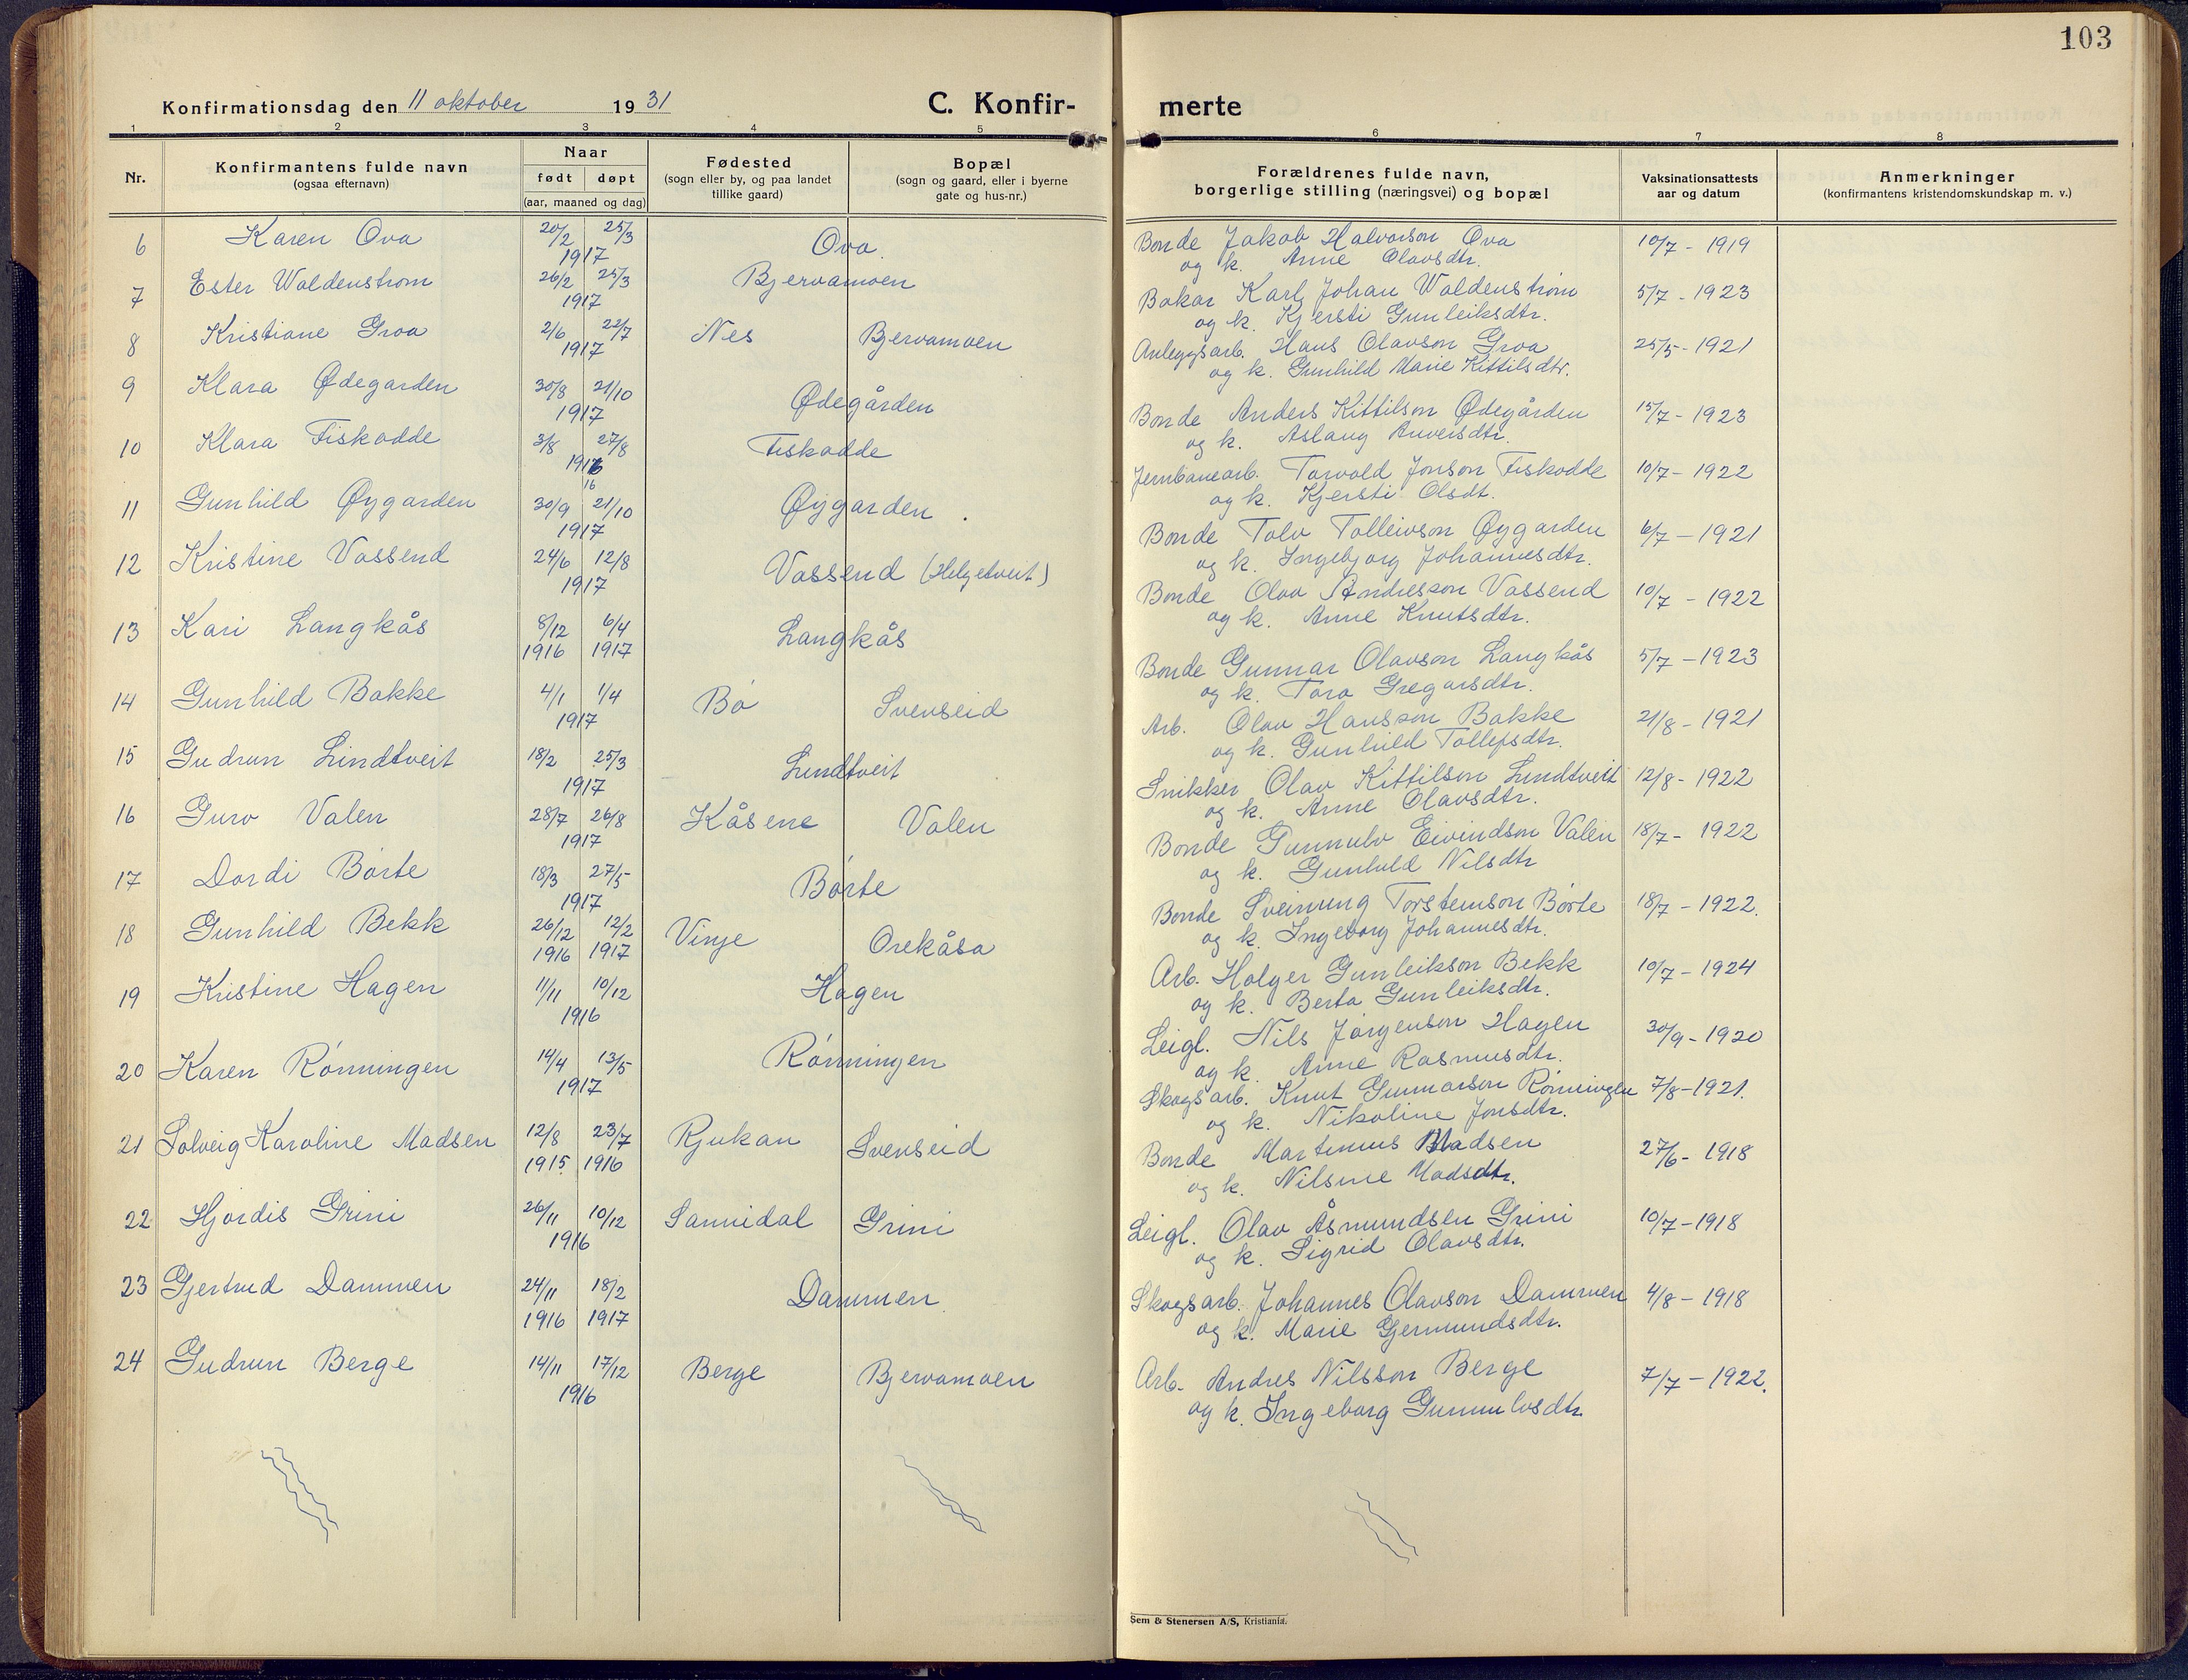 103
Konfirmationsdag den 11 oktober 1931
C. Konfir-
merte
1 2 3 4 5 6 7 8
Nr.
Konfirmantens fulde navn
(ogsaa efternavn)
Naar
født døpt
(aar, maaned og dag)
Fødested
(sogn eller by, og paa landet
tillike gaard)
Bopæl
(sogn og gaard, eller i byerne
gate og hus-nr.)
Forældrenes fulde navn,
borgerlige stilling (næringsvei) og bopæl
Vaksinationsattests
aar og datum
Anmerkninger
(konfirmantens kristendomskundskap m. v.)
6 Karen Ova 20/2 25/3 Ova. Bonde Jakob Halvorson Ova 10/7 - 1919
1917 og k. Anne Olavsdtr.
7 Ester Waldenstrom 26/2 25/3 Bjervamoen Bakar Karl Johan Waldenstrøm 5/7 - 1923
1917 og k. Kjersti Gunleiksdtr.
8 Kristiane Groa 2/6 22/7 Nes Bjervamoen Anleggsarb. Hans Olavson Groa 25/5 - 1921
1917 og k. Gunhild Marie Kittilsdtr.
9 Klara Ødegarden 30/8 21/10 Ødegården Bonde Anders Kittilson Ødegården 15/7 - 1923
1917 og k. Aslaug Anversdtr.
10 Klara Fiskodde 3/8 27/8 Fiskodde Jernbanearb. Torvald Jonson Fiskodde 10/7 - 1922
1916 og k. Kjersti Olsdt.
16
11 Gunhild Øygarden 30/9 21/10 Øygarden. Bonde Tolv Tolleivson Øygarden 6/7 - 1921
1917 og k. Ingebjorg Johannesdtr.
12 Kristine Vassend 24/6 12/8 Vassend (Helgetveit) Bonde Olav Andresson Vassend 10/7 - 1922
1917 og k. Anne Knutsdtr.
13 Kari Langkås 8/12 6/4 Langkås Bonde Gunnar Olavson Langkås 5/7 - 1923
1916 1917 og k. Tora Gregarsdtr.
14 Gunhild Bakke 4/1 1/4 Bø Svenseid Arb. Olav Hansson Bakke 21/8 - 1921
1917 og k. Gunhild Tollefsdtr.
15 Gudrun Lindtveit 18/2 25/3 Lundtveit Snikker Olav Kittilson Lundtveit 12/8 - 1922
1917 og k. Anne Olavsdtr.
16 Guro Valen 28/7 26/8 Kåsene Valen Bonde Gunnulv Eivindson Valen 18/7 - 1922
1917 og k. Gunhild Nilsdtr
17 Dordi Børte 18/3 27/5 Børte Bonde Sveinung Torsteinson Børte 18/7 - 1922.
1917 og k. Ingeborg Johannesdtr.
18 Gunhild Bekk 26/12 12/2 Vinje Orekåsa Arb. Holger Gunleikson Bekk 10/7 - 1924
1916 1917 og k. Berta Gunleiksdtr.
19 Kristine Hagen 11/11 10/12 Hagen Leigl. Nils Jørgenson Hagen 30/9 - 1920
1916 og k. Anne Rasmusdtr.
20 Karen Rønningen 14/4 13/5 Rønningen Skogsarb. Knut Gunnarson Rønningen 7/8 - 1921.
1917 og k. Nikoline Jonsdtr.
21 Solveig Karoline Madsen 12/8 23/7 Rjukan Svenseid Bonde Martinius Madsen 27/6 - 1918
1915 1916 og k. Nilsine Madsdtr.
22 Hjørdis Grini 26/11 10/12 Sannidal Grini Leigl. Olav Åsmundsen Grini 10/7 - 1918
1916 og k. Sigrid Olavsdtr.
23 Gjertrud Dammen 24/11 18/2 Dammen Skogsarb. Johannes Olavson Dammen 4/8 - 1918
1916 1917 og k. Marie Gjermundsdtr.
24 Gudrun Berge 14/11 17/12 Berge Bjervamoen Arb. Andres Nilsson Berge 7/7 - 1922.
1916 og k. Ingeborg Gunnulvsdtr.
Sem & Stenersen A/S, Kristiania.